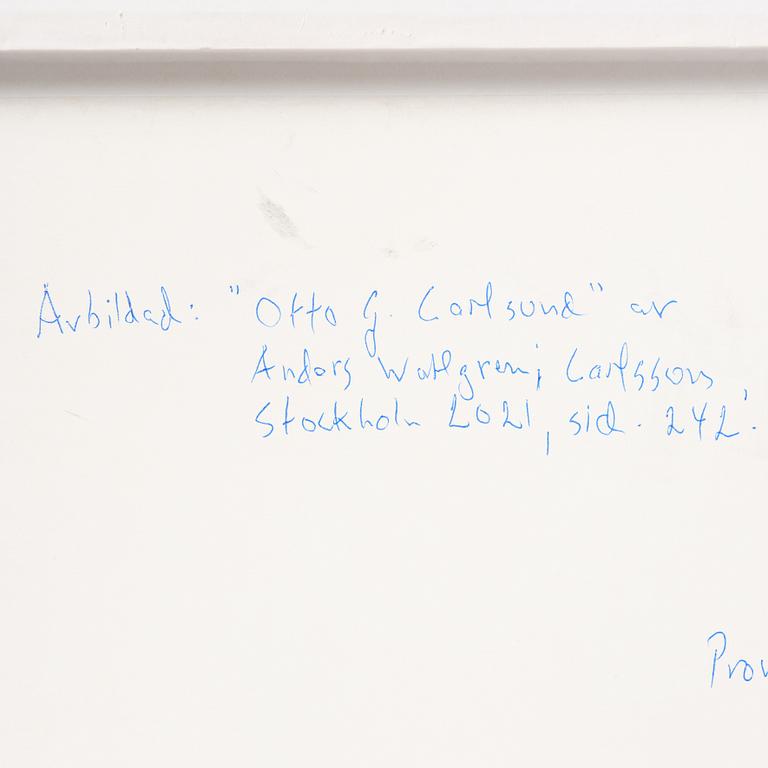 Avbildad: "Otto G. Carlsund" av
Anders Wahlgren; Carlssons,
Stockholm 2021, sid. 242.
Prov